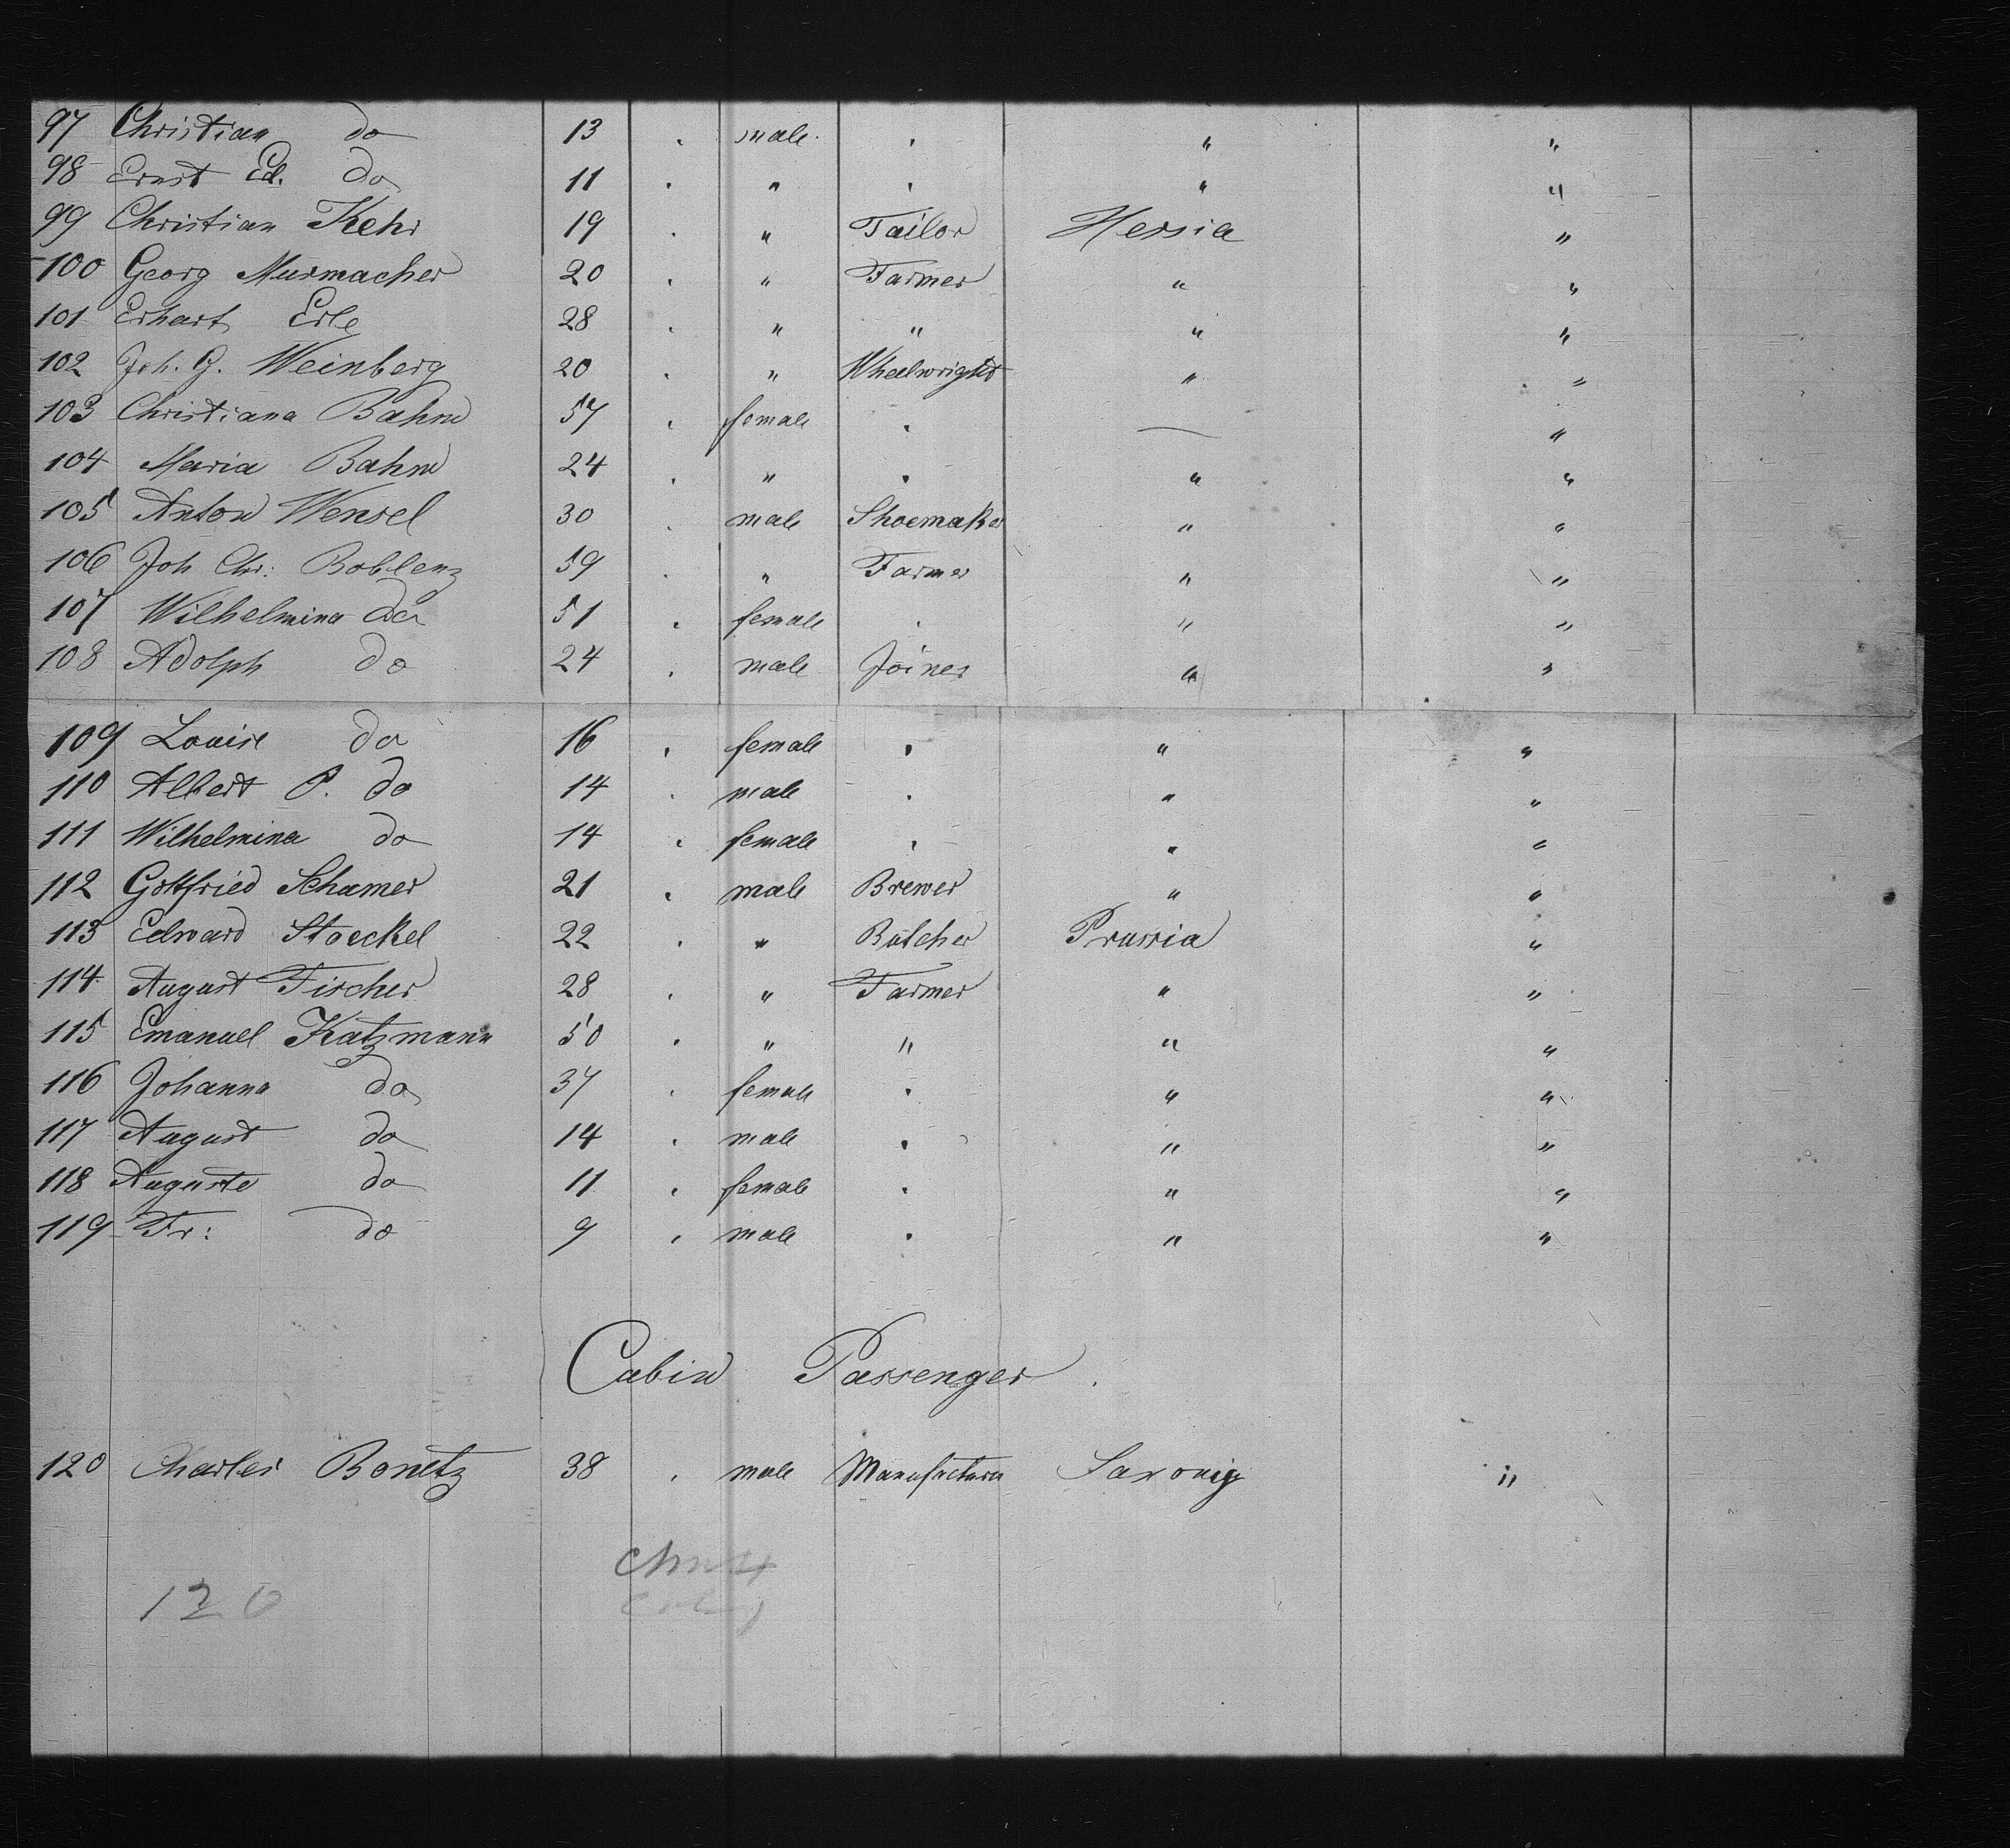 97 Christian do 13 . male . " "
98 Ernst Ed. do 11 . " . " "
99 Christian Kehr 19 . " Tailor Hersia "
100 Georg Murmacher 20 . " Farmer " "
101 Erhart Erle 28 . " " " "
102 Joh. G. Weinberg 20 . " Wheelwright " "
103 Christiana Bahn 57 . female . — "
104 Maria Bahn 24 . " . " "
105 Anton Wensel 30 . male Shoemaker " "
106 Joh Chr: Boblenz 59 . " Farmer " "
107 Wilhelmina do 51 . female . " "
108 Adolph do 24 . male Joiner " "
109 Louise do 16 . female . " "
110 Albert P. do 14 . male . " "
111 Wilhelmina do 14 . female . " "
112 Gottfried Schamer 21 . male Brewer " "
113 Edward Stoeckel 22 . " Butcher Prussia "
114 August Fischer 28 . " Farmer " "
115 Emanuel Katzmann 50 . " " " "
116 Johanna do 37 . female . " "
117 August do 14 . male . " "
118 Auguste do 11 . female . " "
119 Fr: do 9 . male . " "
Cabin Passenger.
120 Charles Bonetz 38 . male Manufacturer Saxony "
120